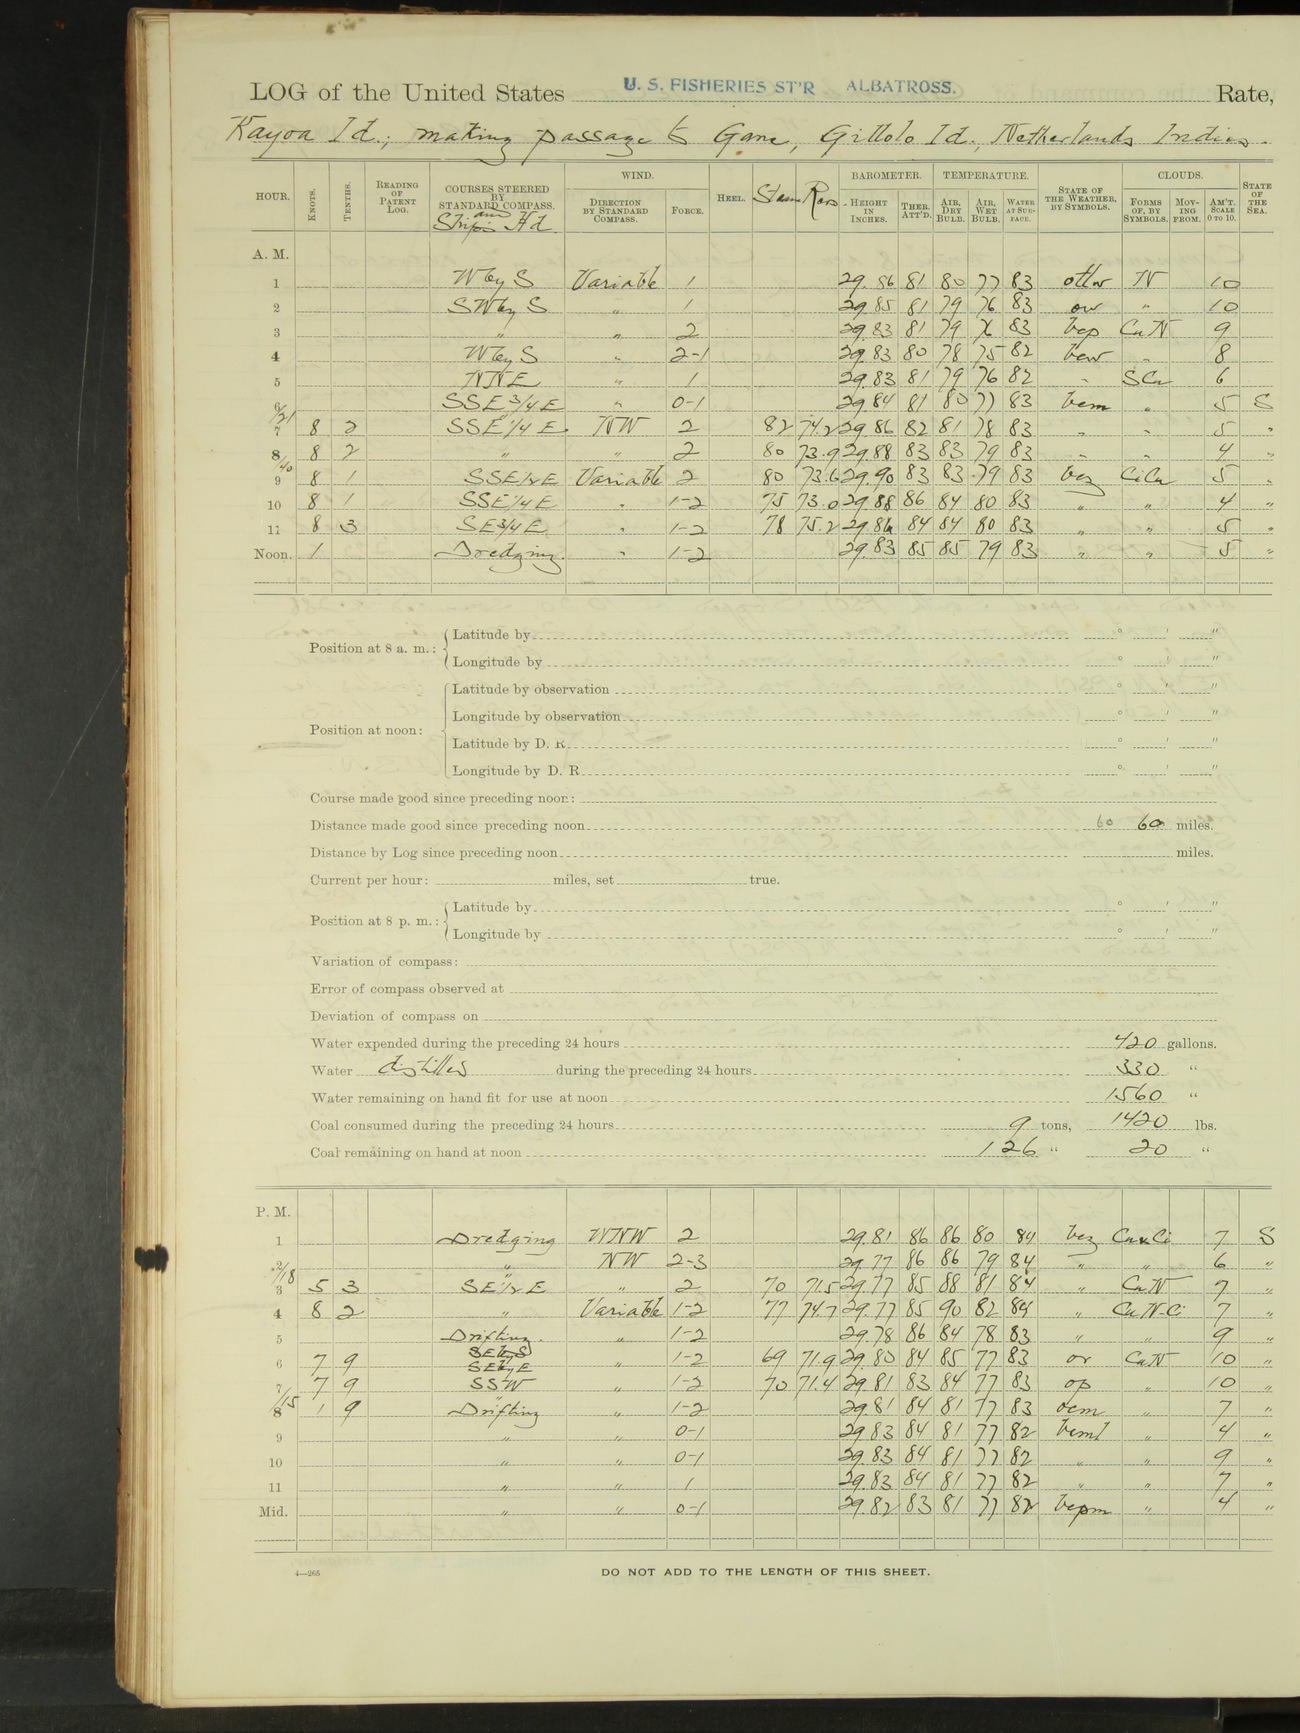 LOG of the United States U. S. FISHERIES ST'R ALBATROSS. Rate,
Kayoa Id.; making passage to Gane, Gillolo Id., Netherlands Indies.
HOUR. KNOTS. TENTHS. READING OF PATENT LOG. COURSES STEERED BY STANDARD COMPASS. and Ship's Hd. WIND. DIRECTION BY STANDARD COMPASS. FORCE. HEEL. Steam Revs. BAROMETER. HEIGHT IN INCHES. THER. ATT'D. TEMPERATURE. AIR, DRY BULB. AIR, WET BULB. WATER AT SURFACE. STATE OF THE WEATHER, BY SYMBOLS. CLOUDS. FORMS OF, BY SYMBOLS. MOVING FROM. AM'T. SCALE 0 TO 10. STATE OF THE SEA.
A. M.
1 W by S Variable 1 29.86 81 80 77 83 N 10
2 SW by S " 1 29.85 81 79 76 83 " 10
3 " " 2 29.83 81 79 76 83 bcp CuN 9
4 W by S " 2-1 29.83 80 78 75 82 " 8
5 NNE " 1 29.83 81 79 76 82 " SCu 6
6 SSE 3/4 E " 0-1 29.84 81 80 77 83 bcm " 5 S
7 8 2 SSE 1/4 E NW 2 82 74.2 29.86 82 81 78 83 " " 5 "
8 8 2 " " 2 80 73.9 29.88 83 83 79 83 " " 4 "
9 8 1 SSE 1/2 E Variable 2 80 73.6 29.90 83 83 79 83 bcz CiCu 5 "
10 8 1 SSE 1/4 E " 1-2 75 73.0 29.88 86 84 80 83 " " 4 "
11 8 3 SE 3/4 E " 1-2 78 75.2 29.86 84 84 80 83 " " 5 "
Noon. 1 Dredging " 1-2 29.83 85 85 79 83 " " 5 "
Position at 8 a. m.: Latitude by ° ' "
Longitude by ° ' "
Position at noon: Latitude by observation ° ' "
Longitude by observation ° ' "
Latitude by D. R. ° ' "
Longitude by D. R. ° ' "
Course made good since preceding noon:
Distance made good since preceding noon 60 60 miles.
Distance by Log since preceding noon miles.
Current per hour: miles, set true.
Position at 8 p. m.: Latitude by ° ' "
Longitude by ° ' "
Variation of compass:
Error of compass observed at
Deviation of compass on
Water expended during the preceding 24 hours 420 gallons.
Water distilled during the preceding 24 hours 330 "
Water remaining on hand fit for use at noon 1560 "
Coal consumed during the preceding 24 hours 9 tons, 1420 lbs.
Coal remaining on hand at noon 126 " 20 "
P. M.
1 Dredging WNW 2 29.81 86 86 80 84 bcz Cu&Ci 7 S
2 " NW 2-3 29.77 86 86 79 84 " " 6 "
3 5 3 SE 1/2 E " 2 70 71.5 29.77 85 88 81 84 " CuN 7 "
4 8 2 " Variable 1-2 77 74.7 29.77 85 90 82 84 " CuN-Ci 7 "
5 Drifting " 1-2 29.78 86 84 78 83 " " 9 "
SE by S
6 7 9 SE by E " 1-2 69 71.9 29.80 84 85 77 83 or CuN 10 "
7 7 9 SSW " 1-2 70 71.4 29.81 83 84 77 83 op " 10 "
8 1 9 Drifting " 1-2 29.81 84 81 77 83 ocm " 7 "
9 " " 0-1 29.83 84 81 77 82 bcml " 4 "
10 " 0-1 29.83 84 81 77 82 " " 9 "
11 " " 1 29.83 84 81 77 82 " " 7 "
Mid. " " 0-1 29.82 83 81 77 82 bcpm " 4 "
4—265 DO NOT ADD TO THE LENGTH OF THIS SHEET.